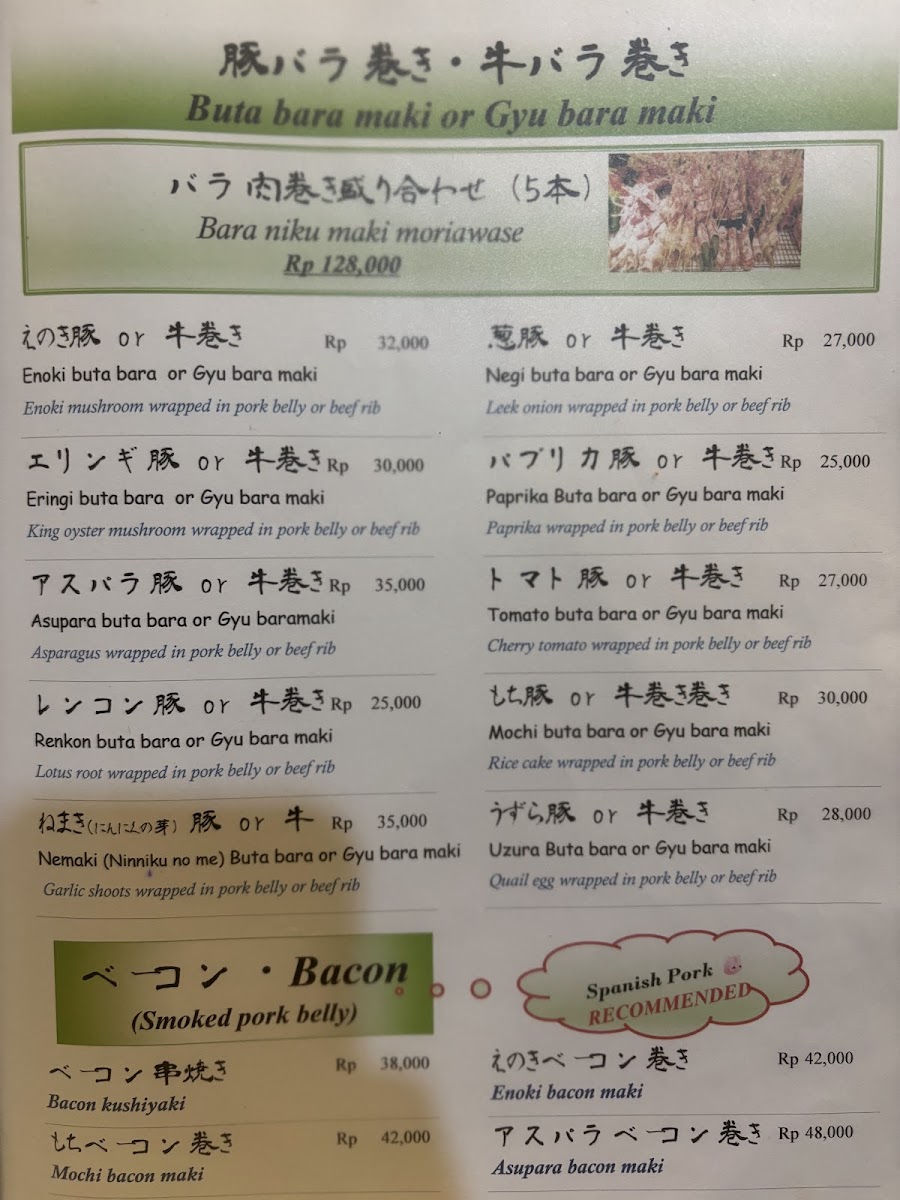 豚バラ巻き・牛バラ巻き
Buta bara maki or Gyu bara maki
バラ肉巻き盛り合わせ（5本）
Bara niku maki moriawase
Rp 128,000
えのき豚 or 牛巻き Rp 32,000
Enoki buta bara or Gyu bara maki
Enoki mushroom wrapped in pork belly or beef rib
エリンギ豚 or 牛巻き Rp 30,000
Eringi buta bara or Gyu bara maki
King oyster mushroom wrapped in pork belly or beef rib
アスパラ豚 or 牛巻き Rp 35,000
Asupara buta bara or Gyu baramaki
Asparagus wrapped in pork belly or beef rib
レンコン豚 or 牛巻き Rp 25,000
Renkon buta bara or Gyu bara maki
Lotus root wrapped in pork belly or beef rib
ねまき(にんにんの芽) 豚 or 牛 Rp 35,000
Nemaki (Ninniku no me) Buta bara or Gyu bara maki
Garlic shoots wrapped in pork belly or beef rib
葱豚 or 牛巻き Rp 27,000
Negi buta bara or Gyu bara maki
Leek onion wrapped in pork belly or beef rib
パプリカ豚 or 牛巻き Rp 25,000
Paprika Buta bara or Gyu bara maki
Paprika wrapped in pork belly or beef rib
トマト豚 or 牛巻き Rp 27,000
Tomato buta bara or Gyu bara maki
Cherry tomato wrapped in pork belly or beef rib
もち豚 or 牛巻き巻き Rp 30,000
Mochi buta bara or Gyu bara maki
Rice cake wrapped in pork belly or beef rib
うずら豚 or 牛巻き Rp 28,000
Uzura Buta bara or Gyu bara maki
Quail egg wrapped in pork belly or beef rib
ベーコン・Bacon
(Smoked pork belly)
Spanish Pork
RECOMMENDED
ベーコン串焼き Rp 38,000
Bacon kushiyaki
もちベーコン巻き Rp 42,000
Mochi bacon maki
えのきベーコン巻き Rp 42,000
Enoki bacon maki
アスパラベーコン巻き Rp 48,000
Asupara bacon maki